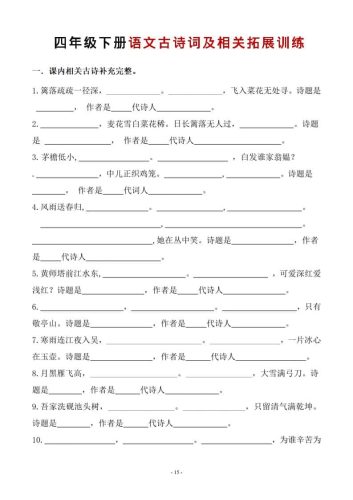 四年级下册语文古诗词及相关拓展训练
一．课内相关古诗补充完整。
1.篱落疏疏一径深，____________。____________，飞入菜花无处寻。诗题是
____________，作者是____代诗人____________。
2.____________，麦花雪白菜花稀。日长篱落无人过，____________。诗题
是____________，作者是____代诗人____________。
3.茅檐低小，____________。____________，白发谁家翁媪？
____________，中儿正织鸡笼。____________，____________。诗题是
____________，作者是____代词人____________。
4.风雨送春归，____________。____________，____________。
____________，____________。____________，
____________，她在丛中笑。诗题是____________，作者
是____代诗人____________。
5.黄师塔前江水东，____________。____________，可爱深红爱
浅红？诗题是____________，作者是____代诗人____________。
6.____________，____________。____________，只有
敬亭山。诗题是____________，作者是____代诗人____________。
7.寒雨连江夜入吴，____________。____________，一片冰心
在玉壶。诗题是____________，作者是____代诗人____________。
8.月黑雁飞高，____________。____________，大雪满弓刀。诗
题是____________，作者是____代诗人____________。
9.吾家洗砚池头树，____________。____________，只留清气满乾坤。
诗题是____________，作者是____代诗人____________。
10.____________，____________。____________，为谁辛苦为
- 15 -